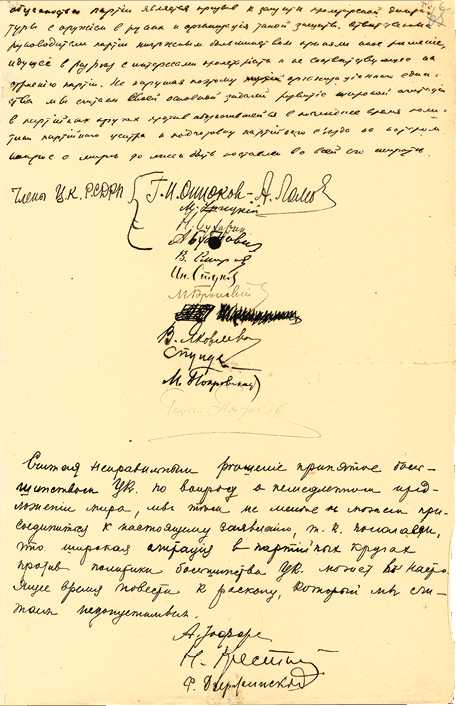 партии является призыв к защите пролетарской дикта-
туры с оружием в руках и организация такой защиты. ответственные
руководители партии
идущее в разрез с интересами пролетариата и не соответствующее
партии. Не нарушая
ства мы считаем своей основной задачей развитие широкой агитации
в партийных кругах против в последнее время поли-
тики партийного центра и подготовку партийного съезда на котором
вопрос о мире должен быть поставлен во всей его широте.
Члены Ц.К. РСДРП
Г.И. Оппоков - А. Ломов
М. Урицкий
Н. Бухарин
А. Бубнов
В. Смирнов
Ин. Стуков
М. Бронский
В. Яковлева
Спундэ
М. Покровский
Считая неправильным решение принятое боль-
шинством ЦК. по вопросу о немедленном пред-
ложении мира, мы тем не менее не можем при-
соединится к настоящему заявлению, т. к. полагаем,
что широкая агитация в партийных кругах
против политики большинства ЦК. может в наст-
ящее время повести к расколу, который мы счи-
таем недопустимым.
А. Иоффе
Н. Крестинский
Ф. Дзержинский